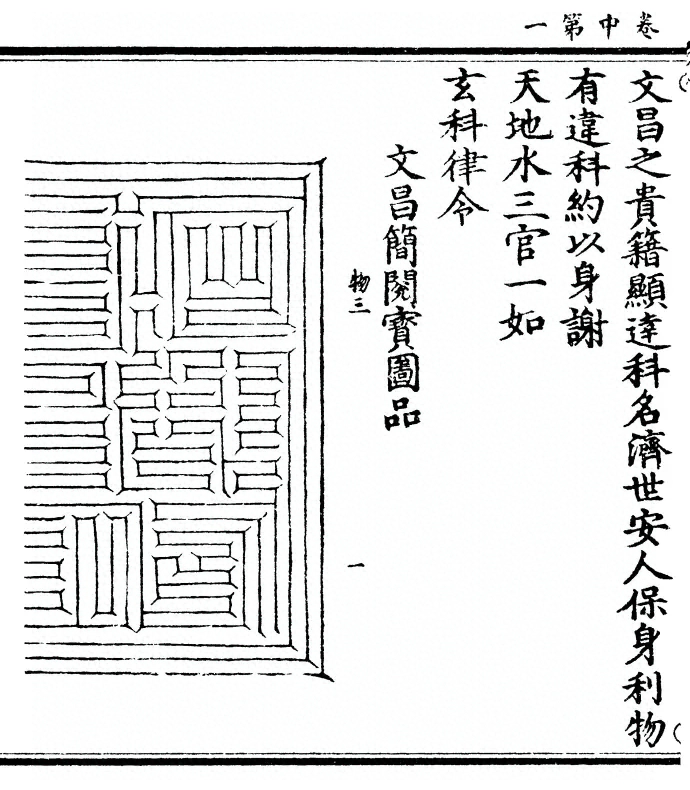 卷中第一
文昌之貴籍顯達科名濟世安人保身利物
有違科約以身謝
天地水三官一如
玄科律令
文昌簡閱寶圖品
物三
一